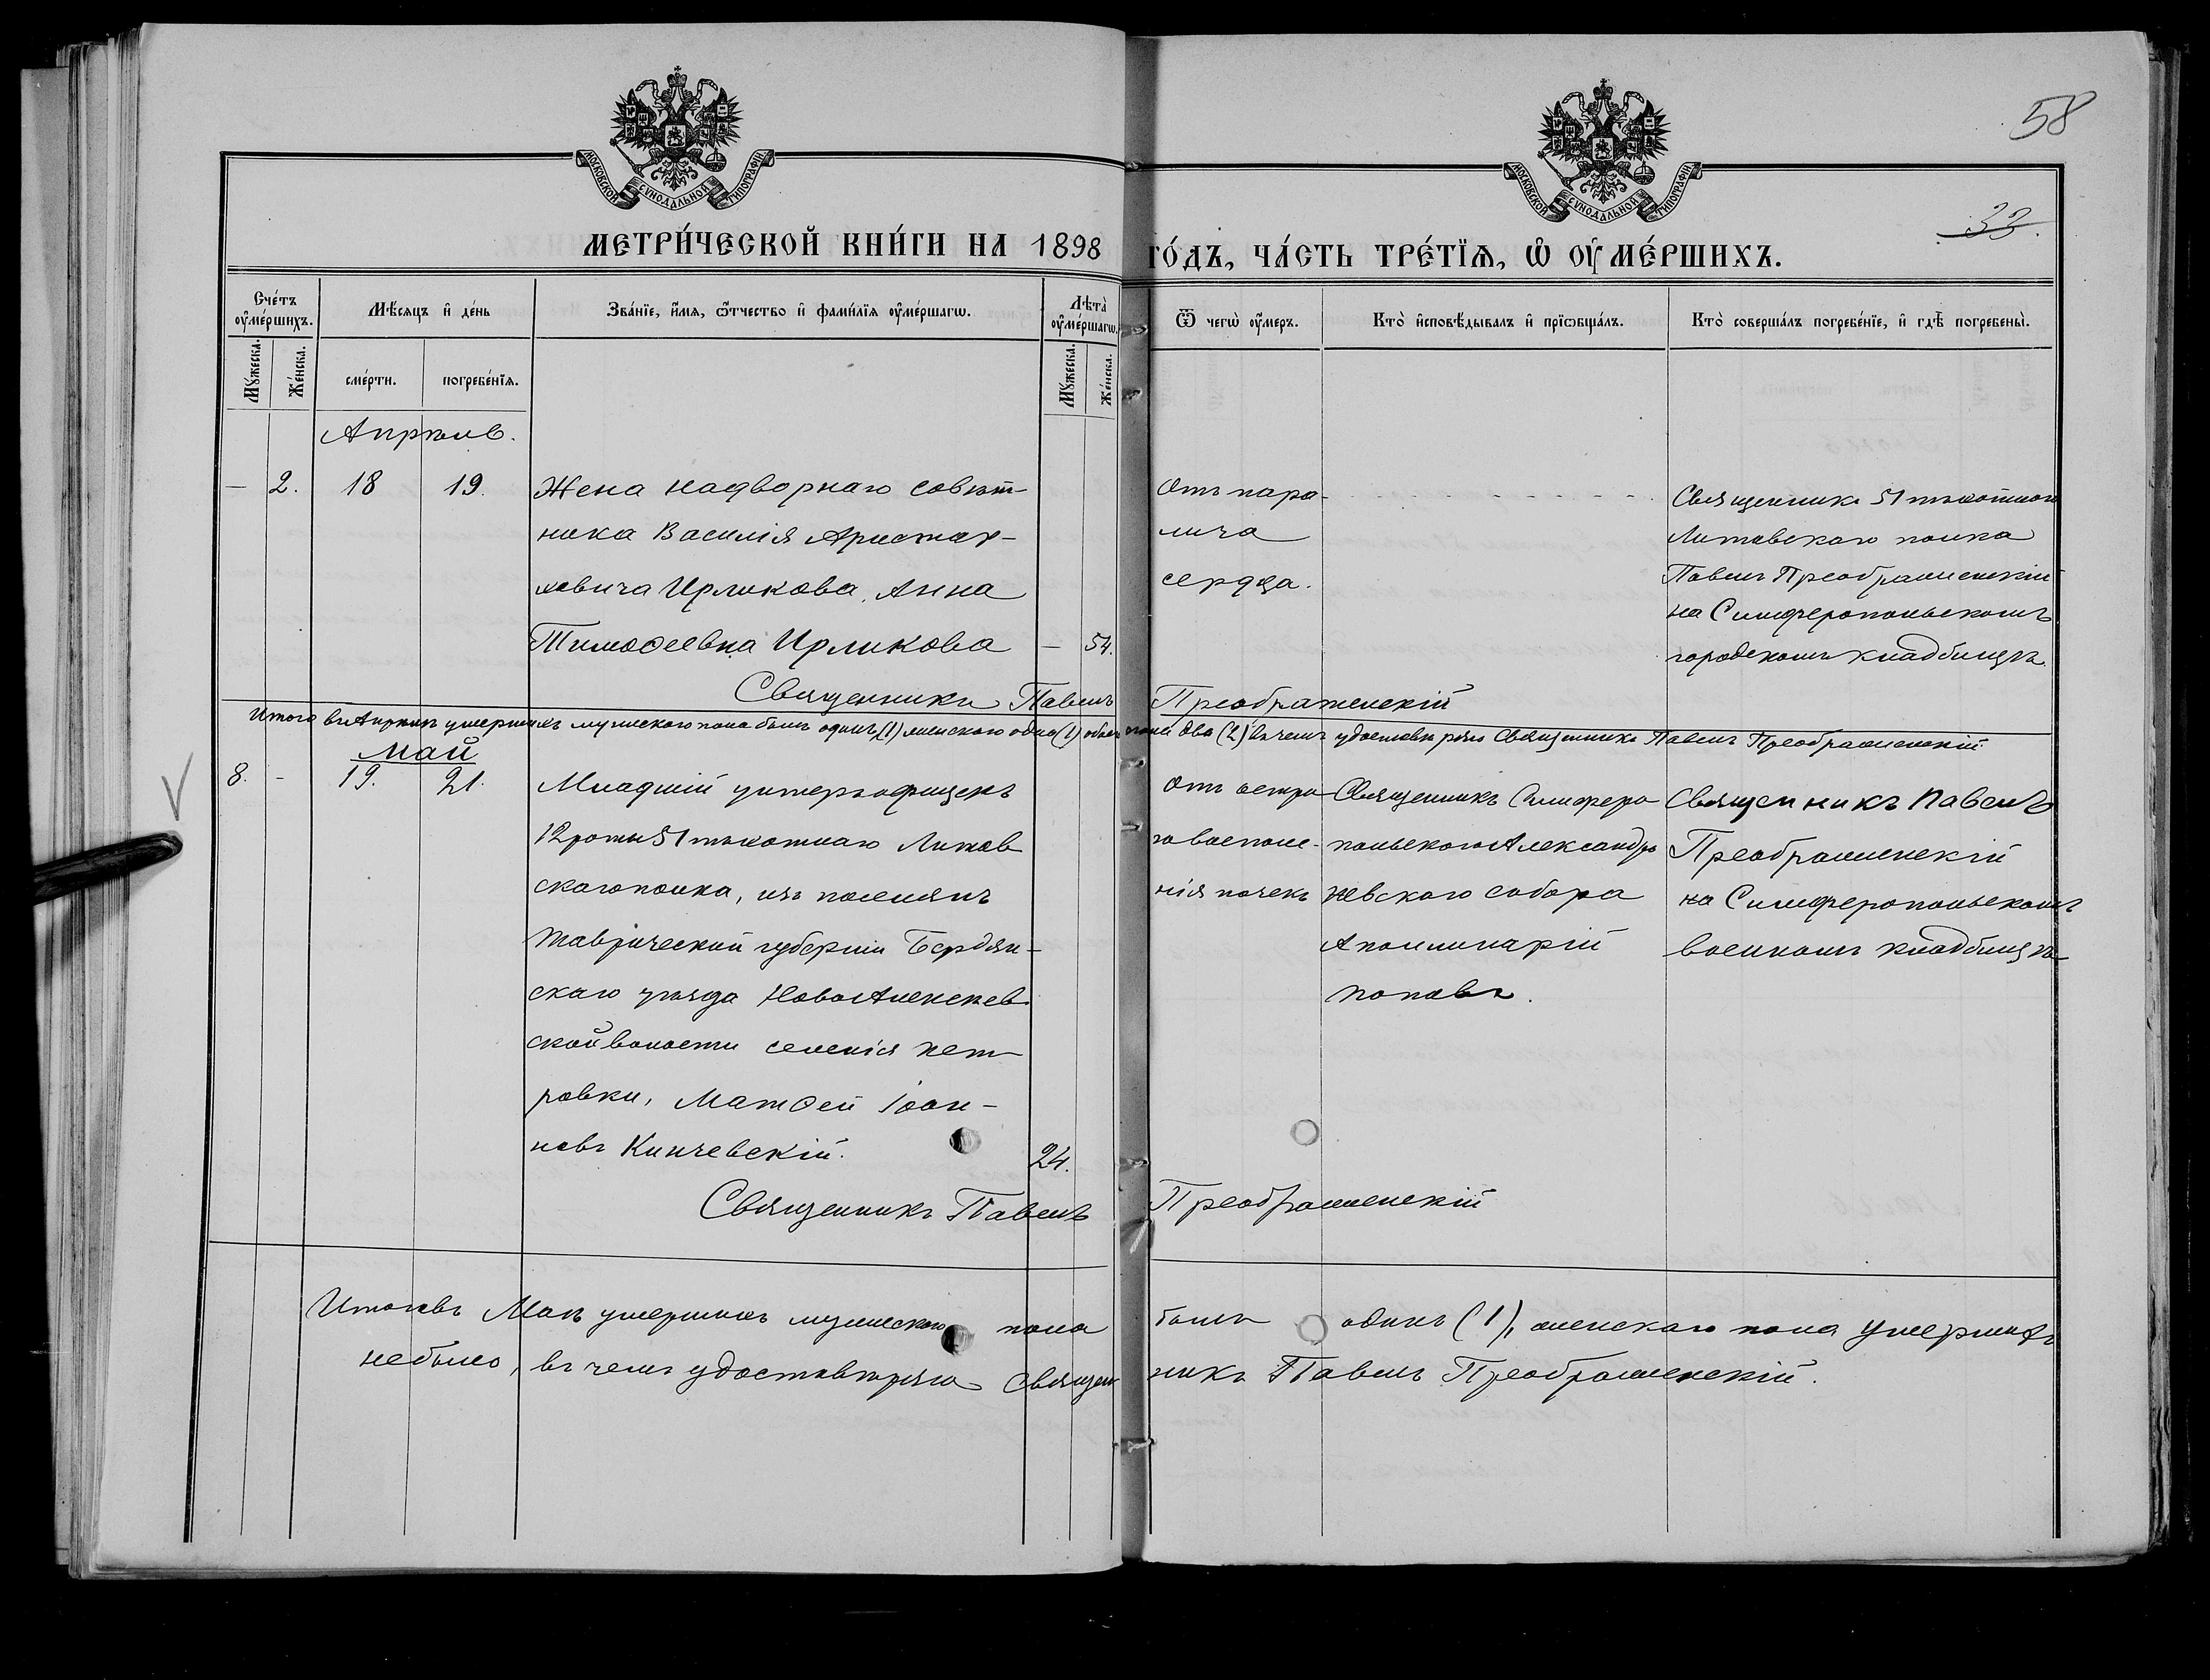 58
МОСКОВСКОЙ СѴНОДАЛЬНОЙ ТИПОГРАФІИ
МОСКОВСКОЙ СѴНОДАЛЬНОЙ ТИПОГРАФІИ
33.
МЕТРИ́ЧЕСКОЙ КНИ́ГИ НА 1898 ГО́ДЪ, ЧА́СТЬ ТРЕ́ТЇѦ, Ѡ҆ ОУ҆МЕ́РШИХЪ.
Сче́тъ оу҆ме́ршихъ.
Мꙋ́жеска.
Же́нска.
Мѣ́сяцъ и҆ де́нь
сме́рти.
погребе́нїѧ.
Зва́нїе, и҆́мѧ, ѻ҆́тчество и҆ фами́лїѧ оу҆ме́ршагѡ.
Лѣ́та оу҆ме́ршагѡ.
Мꙋ́жеска.
Же́нска.
Ѿ чегѡ̀ оу҆́меръ.
Кто̀ и҆сповѣ́дывалъ и҆ прїѡбща́лъ.
Кто̀ соверша́лъ погребе́нїе, и҆ гдѣ̀ погребены̀.
Апрѣль.
— 2. 18 19.
Жена надворнаго совѣт-
ника Василія Аристар-
ховича Ирликова, Анна
Тимоѳеевна Ирликова — 54.
Отъ пара-
лича
сердца.
Священникъ 51 пѣхотнаго
Литовскаго полка
Павелъ Преображенскій
на Симферопольскомъ
городскомъ кладбищѣ.
Священникъ Павелъ Преображенскій
Итого въ Апрѣлѣ умершихъ мужескаго пола былъ одинъ (1) женскаго одна (1) обоего пола два (2) въ чемъ удостовѣряю Священникъ Павелъ Преображенскій.
Май
8. - 19. 21.
Младшій унтеръ-офицеръ
12 роты 51 пѣхотнаго Литов
скаго полка, изъ поселянъ
Таврической губерніи Бердян-
скаго уѣзда НовоАлексѣев
ской волости селенія Пет
ровки, Матѳей Іоан-
новъ Кинчевскій. 24.
Отъ остра
го воспале-
нія почекъ
Священникъ Симферо
польскаго Александро
Невскаго собора
Аполлинарій
Поповъ.
Священникъ Павелъ
Преображенскій
на Симферопольскомъ
военномъ кладбищѣ
Священникъ Павелъ Преображенскій
Итого въ Маѣ умершихъ мужескаго пола былъ одинъ (1), женскаго пола умершихъ
не было, въ чемъ удостовѣряю Священникъ Павелъ Преображенскій.